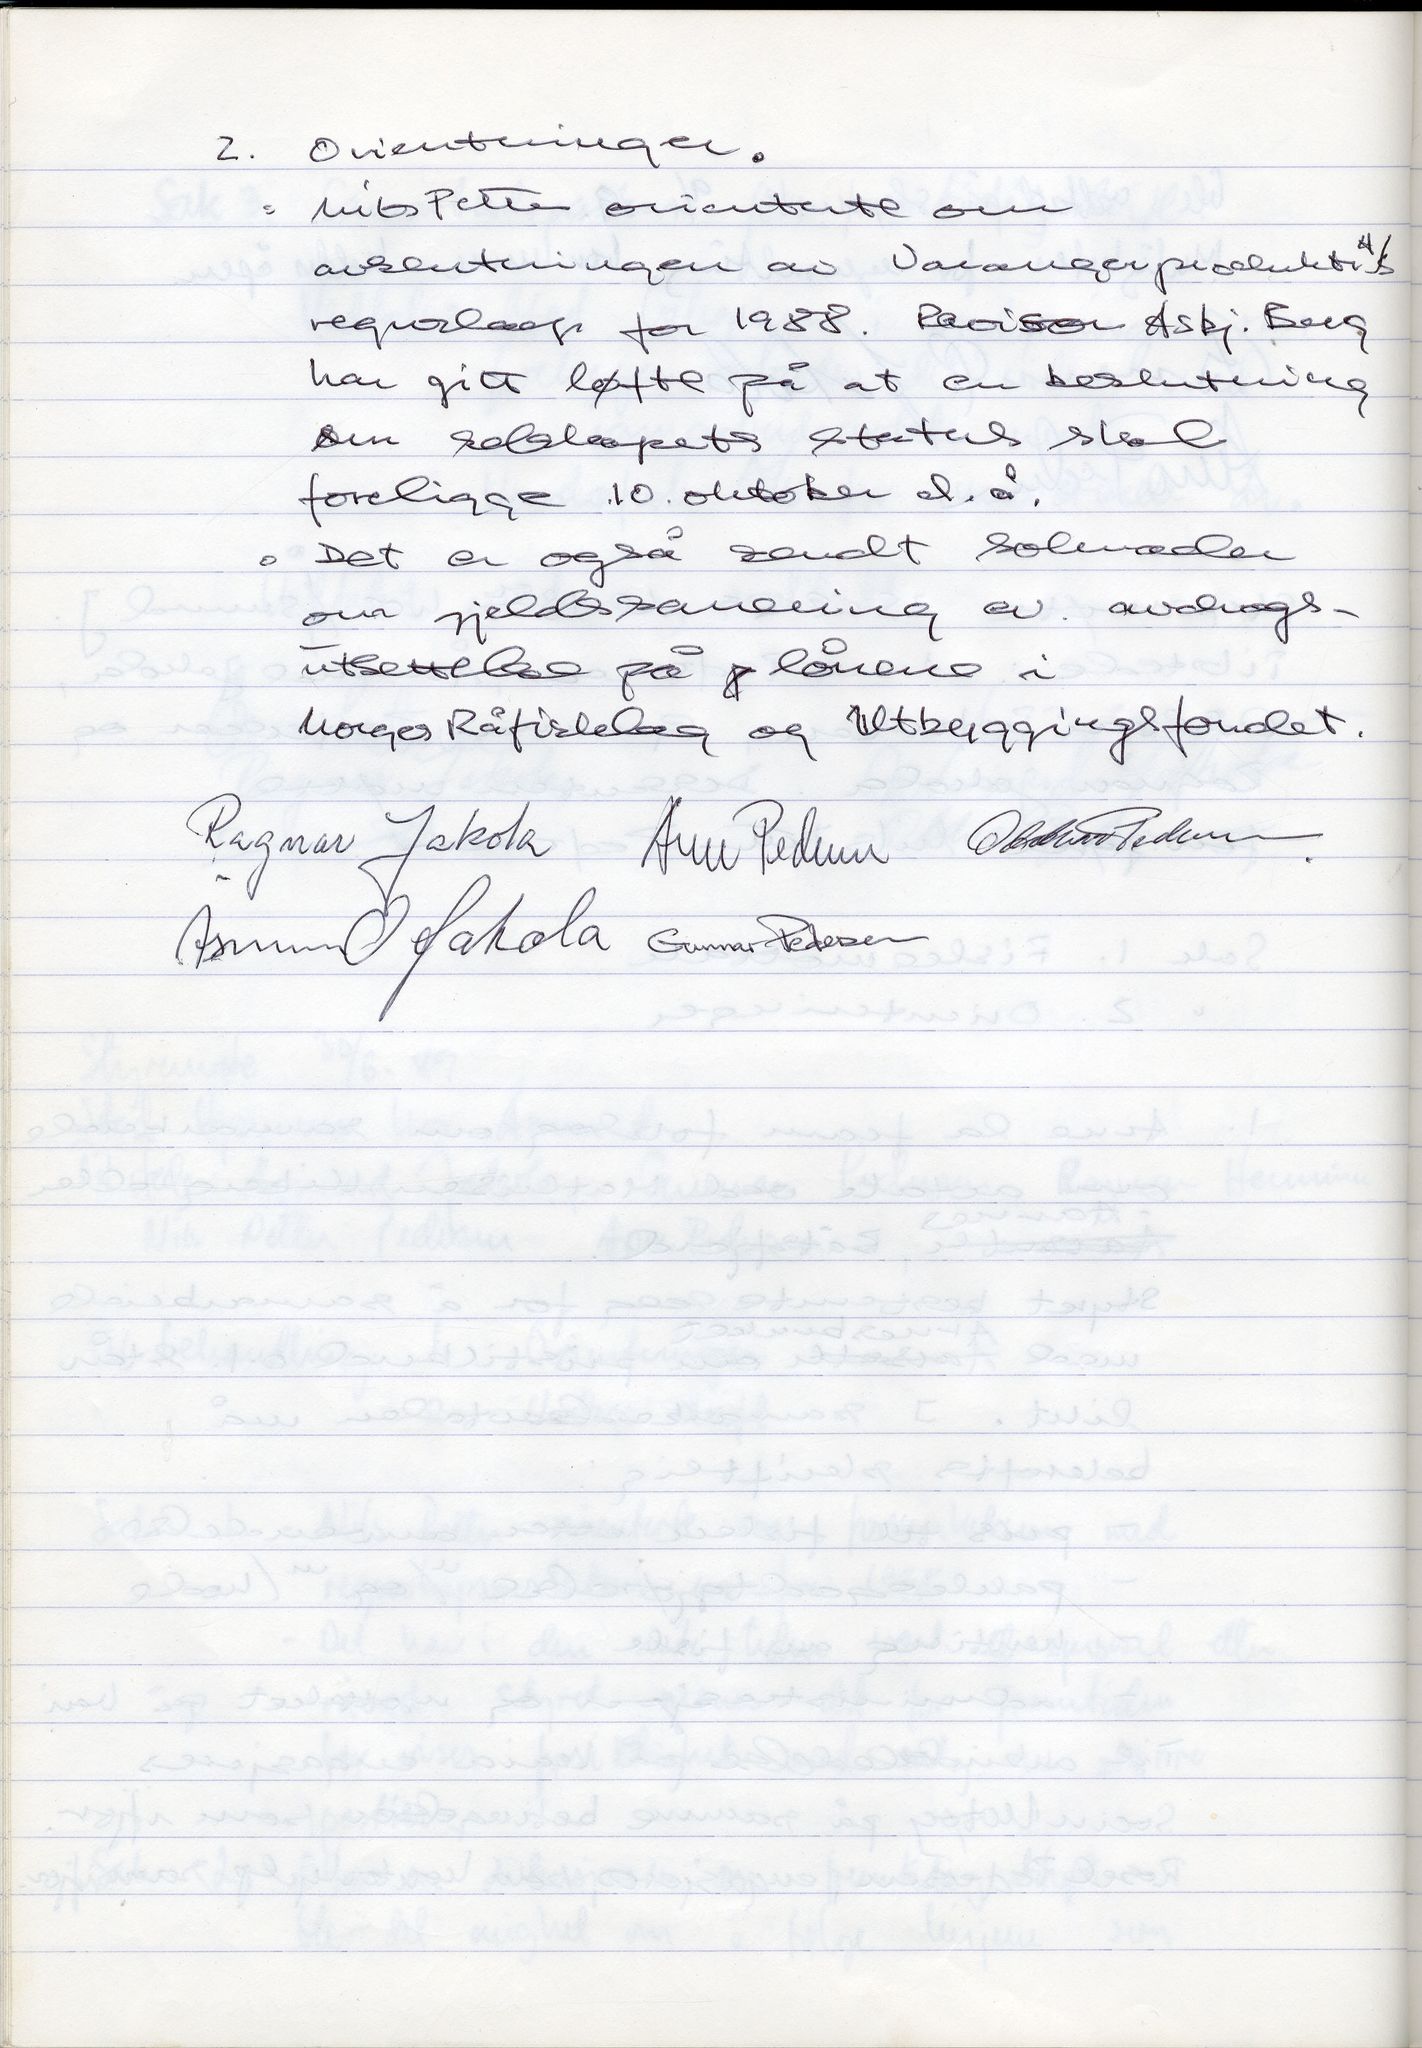 2. Orienteringer.
Nils Petter orienterte om
avslutningen av Varangerprodukter A/S
regnskap for 1988. Revisor Asbj. Berg
har gitt løfte på at en beslutning
om selskapets status skal
foreligge 10. oktober d.å.
Det er også sendt søknader
om gjeldssanering av avdrags-
utsettelse på lånene i
Norges Råfisklag og Utbyggingsfondet.
Ragnar Jakola Arne Pedersen Pedersen
Åsmund Jakola Gunnar Pedersen